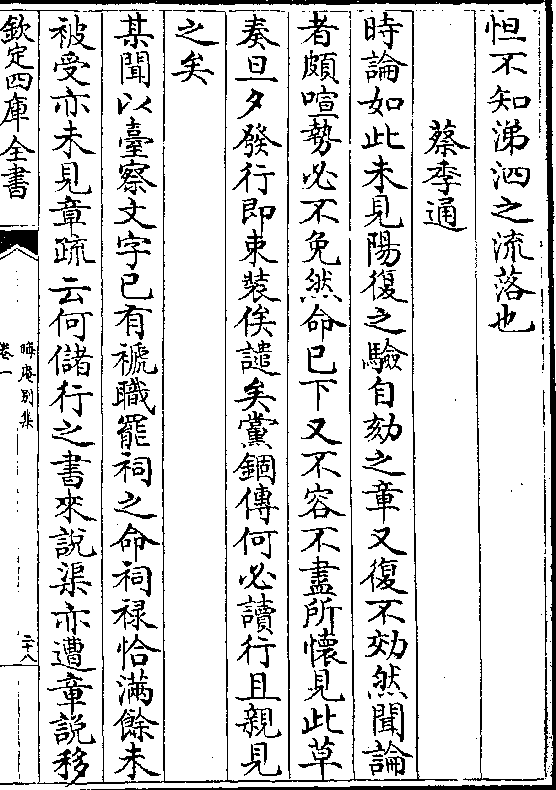 怛不知涕泗之流落也
蔡季通
時論如此未見陽復之驗自劾之章又復不効然聞論
者頗喧勢必不免然命已下又不容不盡所懷見此草
奏旦夕發行即束裝俟譴矣黨錮傳何必讀行且親見
之矣
某聞以臺察文字已有褫職罷祠之命祠禄恰滿餘未
被受亦未見章疏云何儲行之書來說渠亦遭章說移
欽定四庫全書
晦庵别集
卷一
二十八